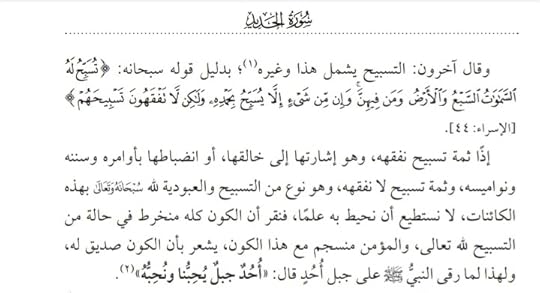 سُورَةُ الحَدِيدِ
وقال آخرون: التسبيح يشمل هذا وغيره(١)؛ بدليل قوله سبحانه: ﴿تُسَبِّحُ لَهُ
السَّمَٰوَٰتُ السَّبْعُ وَالْأَرْضُ وَمَن فِيهِنَّ ۚ وَإِن مِّن شَىْءٍ إِلَّا يُسَبِّحُ بِحَمْدِهِۦ وَلَٰكِن لَّا تَفْقَهُونَ تَسْبِيحَهُمْ﴾
[الإسراء: ٤٤].
إذًا ثمة تسبيح نفقهه، وهو إشارتها إلى خالقها، أو انضباطها بأوامره وسننه
ونواميسه، وثمة تسبيح لا نفقهه، وهو نوع من التسبيح والعبودية لله سُبْحَانَهُ وَتَعَالَى بهذه
الكائنات، لا نستطيع أن نحيط به علمًا، فنقر أن الكون كله منخرط في حالة من
التسبيح لله تعالى، والمؤمن منسجم مع هذا الكون، يشعر بأن الكون صديق له،
ولهذا لما رقى النبيُّ ﷺ على جبل أُحُدٍ قال: «أُحُدٌ جبلٌ يُحِبُّنا ونُحِبُّهُ»(٢).